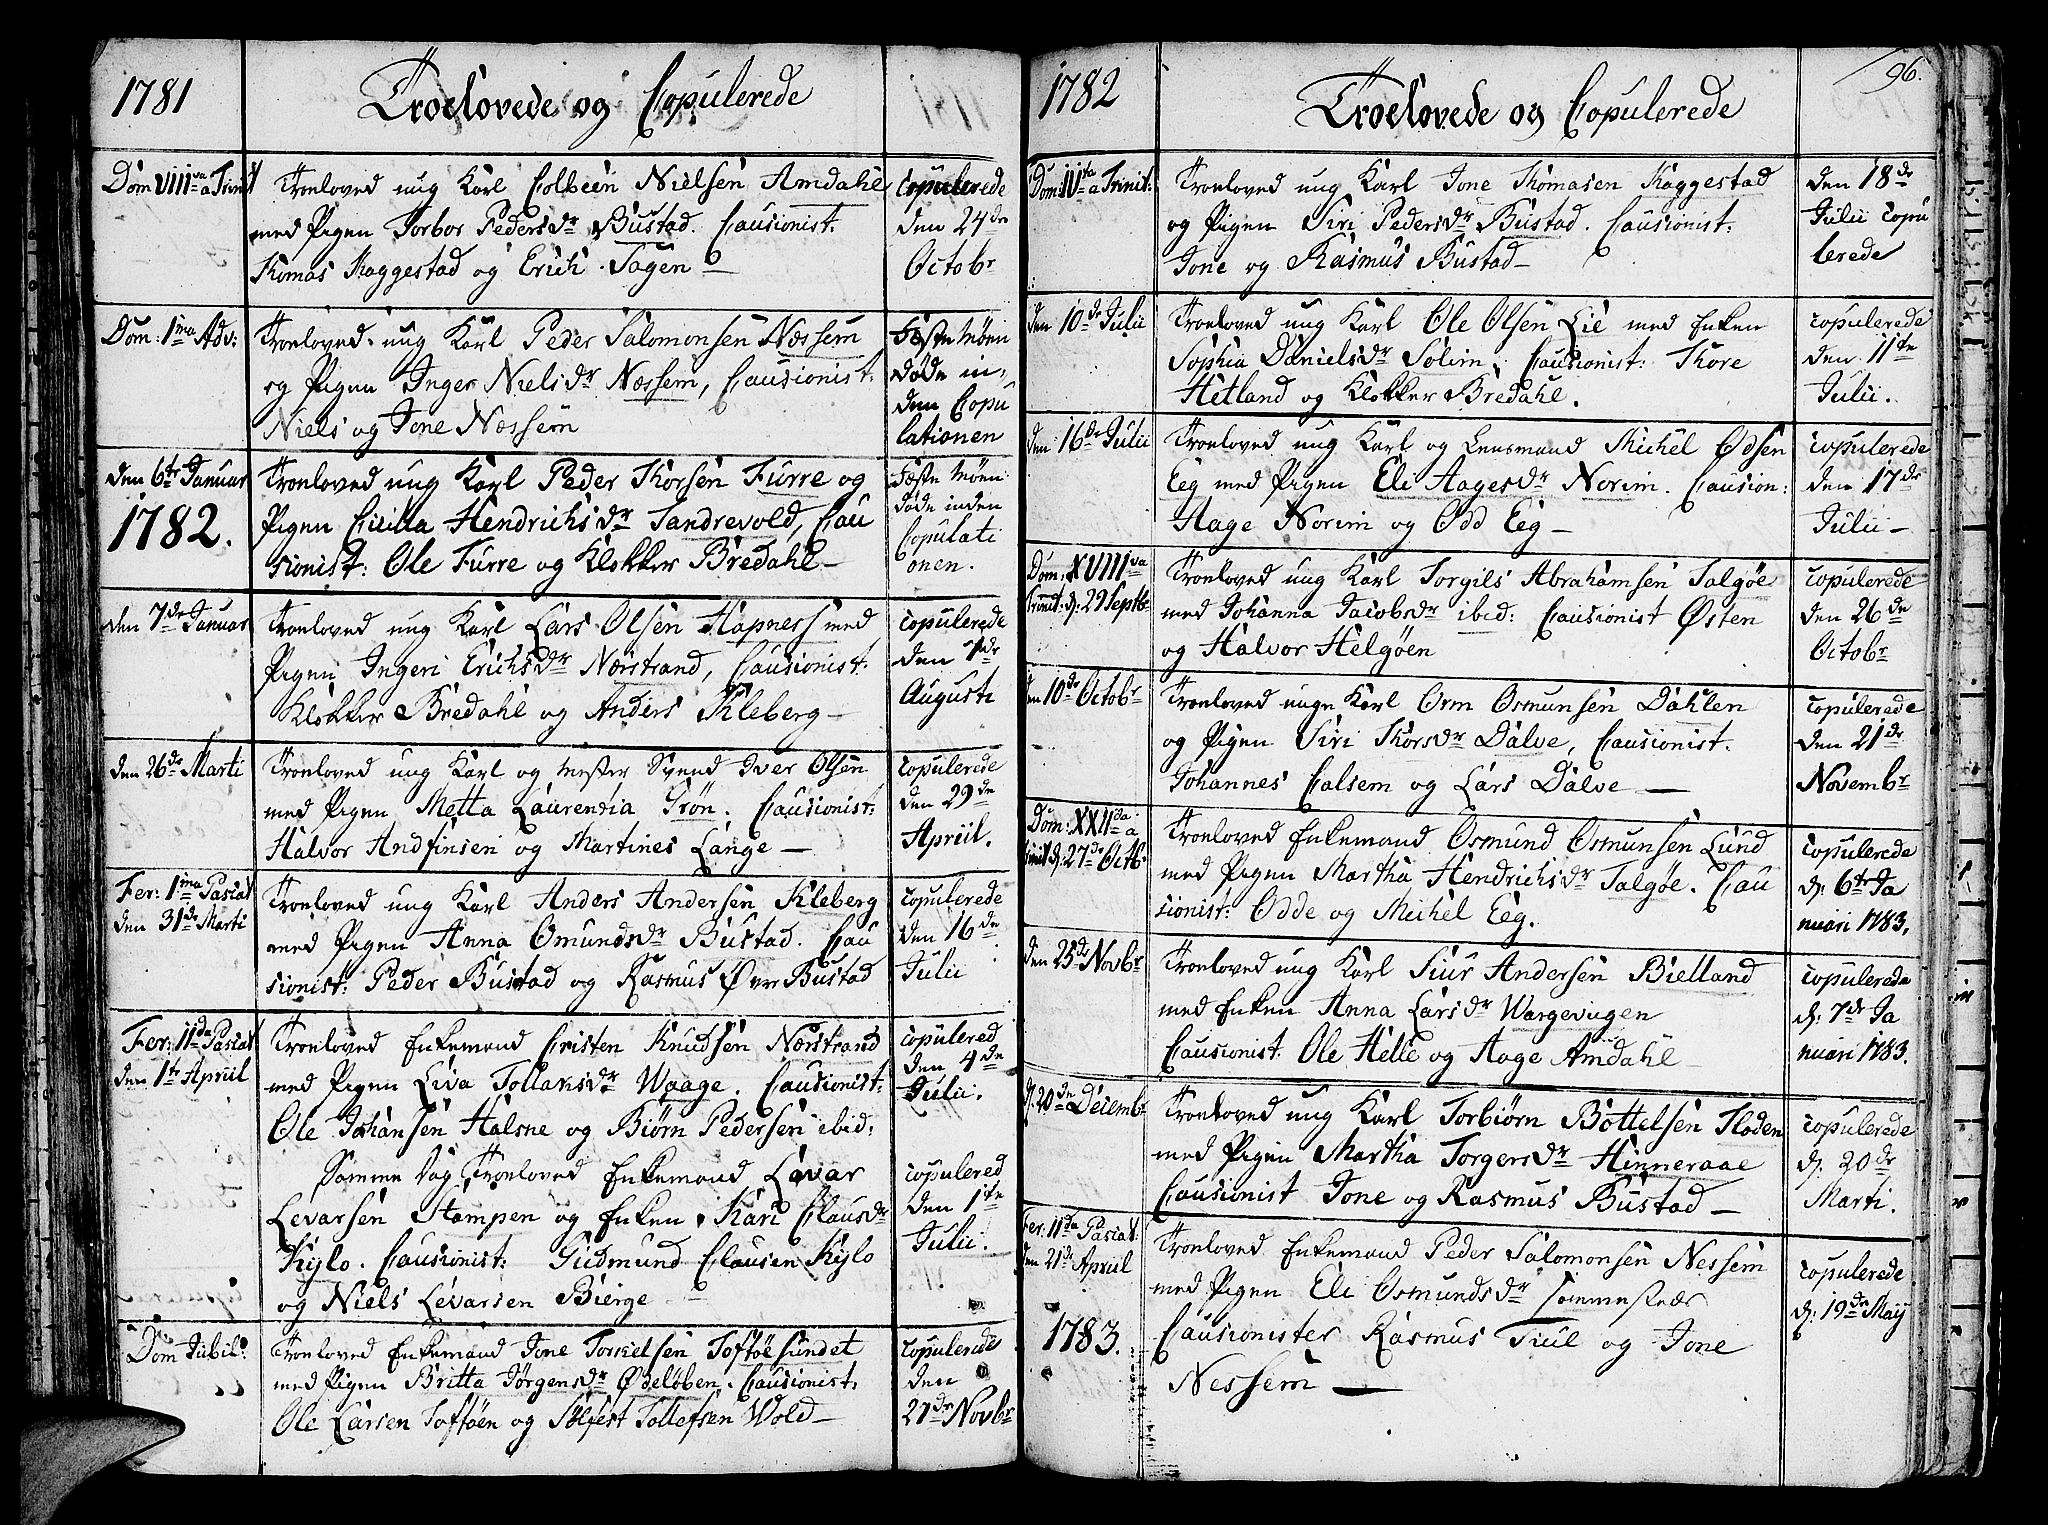 1781
Troelovede og Copulerede
Dom VIIIva a Trinit
Troeloved ung Karl Colbein Nielsen Amdahl
med Pigen Torbor Pedersdr Bustad. Causionist:
Thomas Raggestad og Erich Tagen
Copulerede
den 24de
Octobr
Dom: 1ma Adv:
Troeloved ung Karl Peder Salomonsen Nessem
og Pigen Inger Nielsdr Nessem, Causionist:
Niels og Jone Nessem
Fæste Møen
døde in,
den Copu
lationen
den 6te Januar
1782.
Troeloved ung Karl Peder Thorsen Furre og
Pigen Cicilla Hendrichsdr Sandrevold, Cau
sionist: Ole Furre og Klokker Bredahl
Fæste Møen
døde inden
Copulati
onen.
den 7de Januar
Troeloved ung Karl Lars Olsen Hapness med
Pigen Ingeri Erichsdr Nerstrand, Causionist:
Klokker Bredahl og Anders Kleberg
copulerede
den 1de
Augusti
den 26de Marti
Troeloved ung Karl og Mester Svend Iver Olsen
med Pigen Metta Laurentia Trøn. Causionist:
Halvor Andfinsen og Martines Lange
copulerede
den 29de
Apriil.
Fer: 1ma Pascat
den 31de Marti
Troeloved ung Karl Anders Andersen Kleberg
med Pigen Anna Omundsdr Bustad. Cau
sionist: Peder Bustad og Rasmus Øvre Bustad
copulerede
den 16de
Julii
Fer: 11da Pascat
den 1te Apriil
Troeloved Enkemand Cristen Knudsen Nerstrand
med Pigen Liva Tollaksdr Waage. Causionist:
Ole Johansen Halsne og Biørn Pedersen ibid:
copulered
den 4de
Julii.
Samme Dag Troeloved Enkemand Levar
Levarsen Stampen og Enken Kari Clausdr
Kylo. Causionist: Gudmund Clausen Kylo
og Niels Levarsen Bierge
copulered
den 1te
Julii.
Dom Jubil:
Troeloved Enkemand Jone Torkielsen Toftøesundet
med Pigen Britta Jørgensdr Ødeløben. Causionist.
Ole Larsen Toftøen og Sølfest Tollefsen Wold
copulerede
den
27de Novbr
1782
Troelovede og Copulerede
96.
Dom: IVta a Trinit:
Troeloved ung Karl Jone Thomasen Raggestad
og Pigen Siri Pedersdr Bustad. Causionist:
Jone og Rasmus Bustad
den 18de
Julii copu
lerede
den 10de Julii
Troeloved ung Karl Ole Olsen Lie med Enken
Sophia Danielsdr Solim. Causionist: Thore
Hetland og Klokker Bredahl.
copulerede
den 11te
Julii.
den 16de Julii
Troeloved ung Karl og Lensmand Michel Odsen
Eeg med Pigen Eli Aagesdr Norim. Causion:
Aage Norim og Odd Eeg
copulerede
den 17de
Julii
Dom: XVIIIva
Trinit: d. 29 Septbr
Troeloved ung Karl Torgils Abrahamsen Talgøe
med Johanna Jacobsdr ibid: Causionist Østen
og Halvor Helgøen
copulerede
den 26de
Octobr
den 10de Octobr
Troeloved unge Karl Orm Osmunsen Dahlen
og Pigen Siri Thorsdr Dalve, Causionist.
Johannes Calsem og Lars Dalve
copulerede
den 21de
Novembr
Dom: XXIIda a
Trinit d. 27de Octb
Troeloved Enkemand Osmund Osmunsen Lund
med Pigen Martha Hendrichsdr Talgøe. Cau
sionist: Odde og Michel Eeg.
copulerede
d. 6te Ja
nuari 1783.
den 25de Novbr
Troeloved ung Karl Siur Andersen Bielland
med Enken Anna Larsdr Wargevigen
Causionist: Ole Helle og Aage Amdahl
copulerede
d. 7de Ja
nuari 1783.
d. 20de Decembr
Troeloved ung Karl Torbiørn Bottelsen Floden
med Pigen Martha Torgersdr Hinneraae
Causionist Jone og Rasmus Bustad
copulerede
d. 20de
Marti.
Fer: 11da Pascat:
den 21de Apriil
1783.
Troeloved Enkemand Peder Salomonsen Nessem
med Pigen Eli Osmundsdr sammestæds
Causionister Rasmus Tiul og Jone
Nessem
copulerede
d. 19de Maij